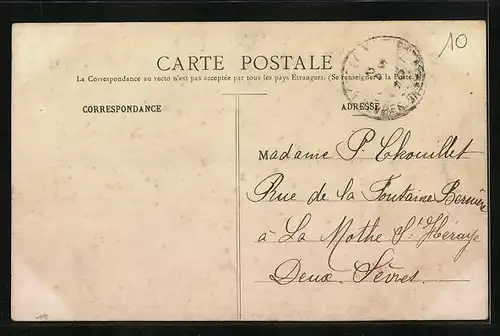 10
CARTE POSTALE
La Correspondance au recto n'est pas acceptée par tous les pays Étrangers. (Se renseigner à la Poste.)
CORRESPONDANCE
ADRESSE
Madame P. Chouillet
Rue de la Fontaine Bernière
à La Mothe St Héraye
Deux. Sèvres.